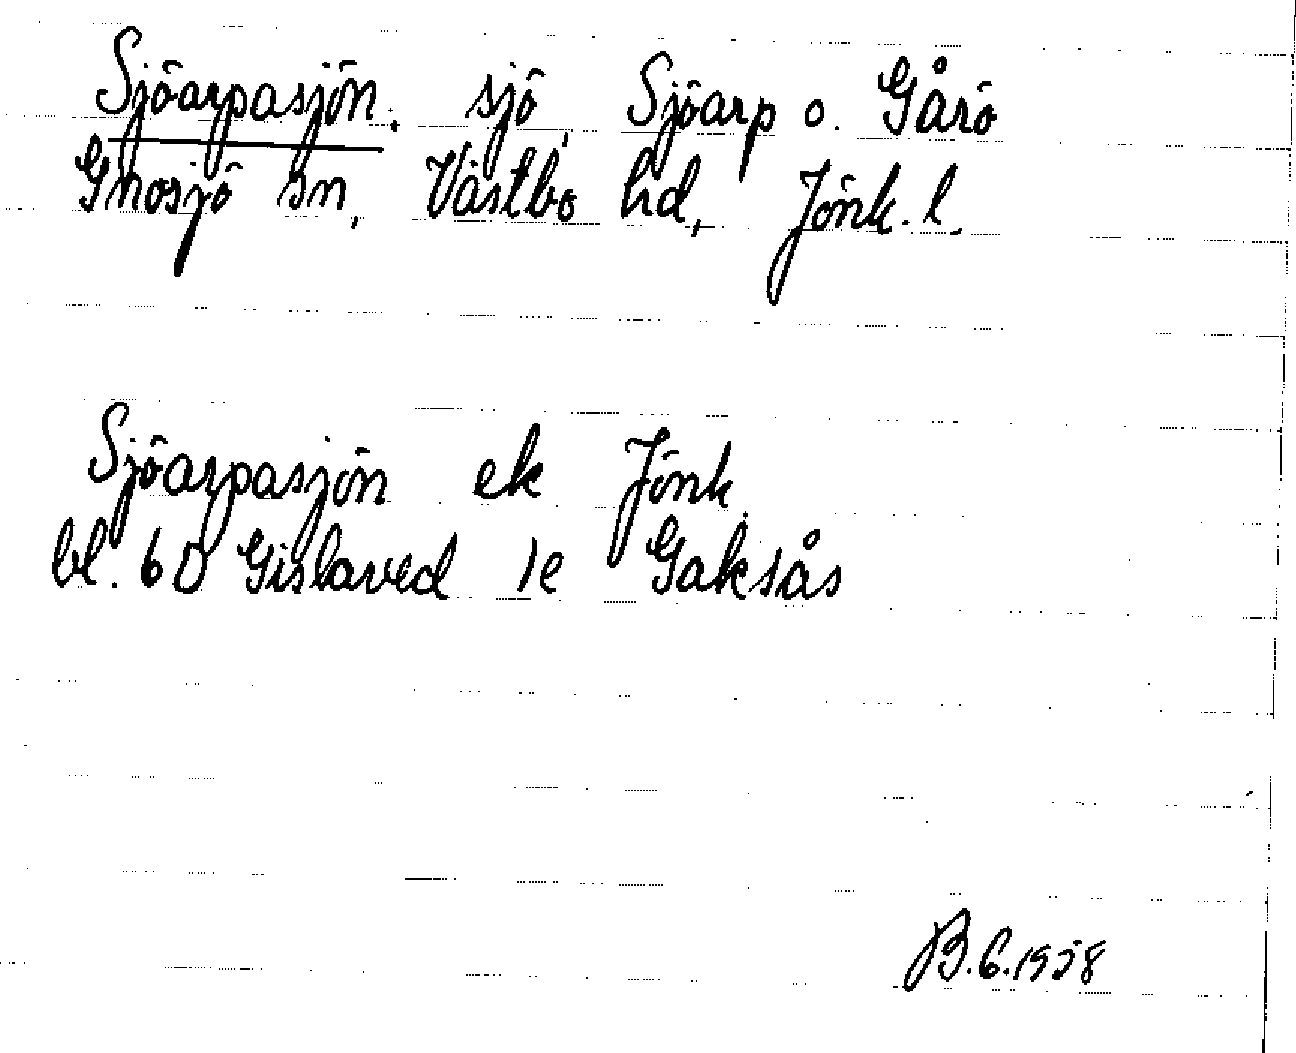 Sjöarpasjön. sjö, Sjöarp o. Gårö
Gnosjö sn, Västbo hd, Jönk. l.
Sjöarpasjön ek Jönk.
bl. 6D Gislaved 1e Gaksås
B.G.1958